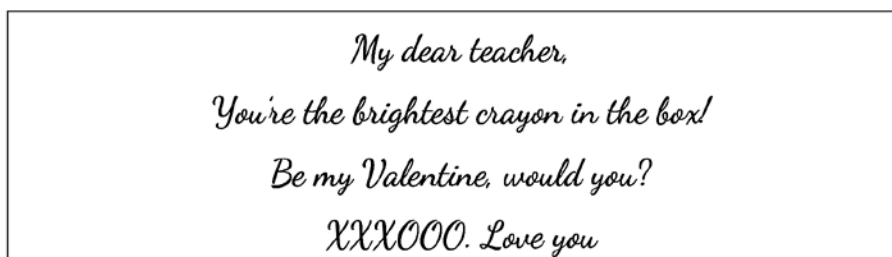 My dear teacher,
You're the brightest crayon in the box!
Be my Valentine, would you?
XXXOOO. Love you